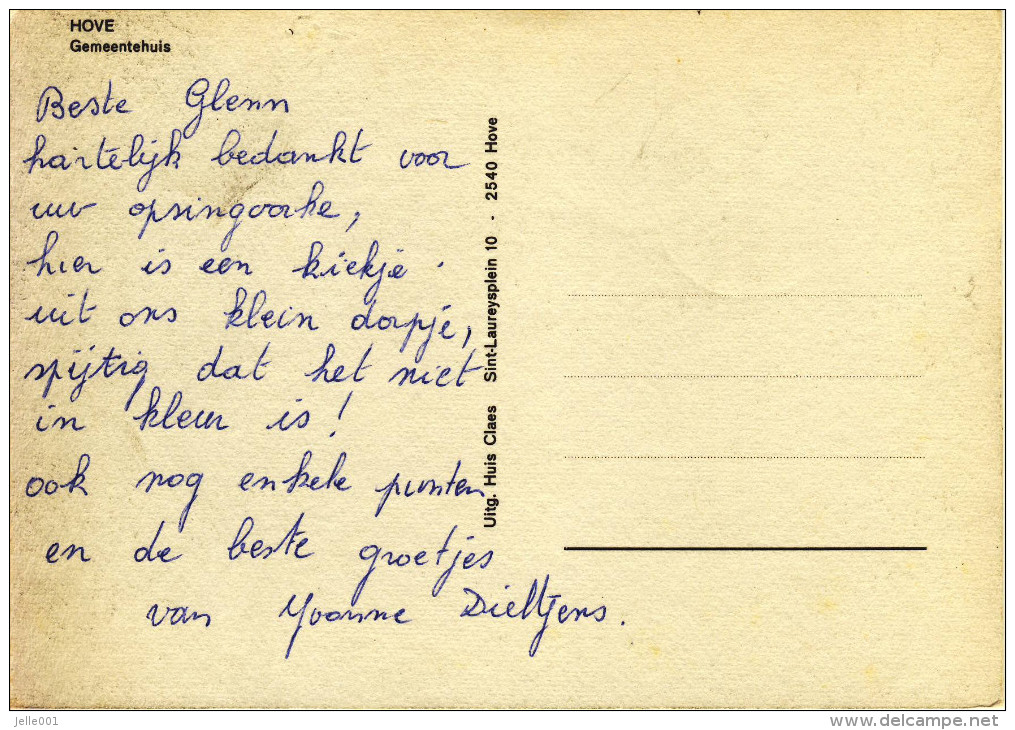 HOVE
Gemeentehuis
Beste Glenn
hartelijk bedankt voor
uw opsingvorke,
hier is een kiekje
uit ons klein dorpje,
spijtig dat het niet
in kleur is!
ook nog enkele punten
en de beste groetjes
van Yvonne Dieltjens.
Uitg. Huis Claes Sint-Laureysplein 10 - 2540 Hove
jelle001
www.delcampe.net